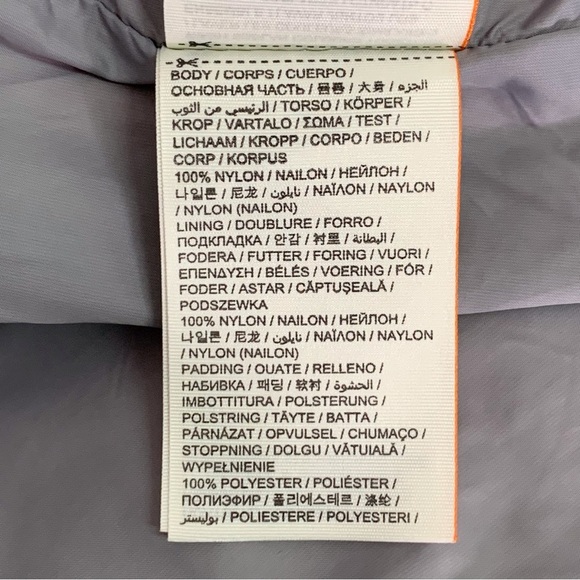 BODY / CORPS / CUERPO /
ОСНОВНАЯ ЧАСТЬ / 몸통 / 大身 / الجزء
الرئيسي من الثوب / TORSO / KÖRPER /
KROP / VARTALO / ΣΩΜΑ / TEST /
LICHAAM / KROPP / CORPO / BEDEN /
CORP / KORPUS
100% NYLON / NAILON / НЕЙЛОН /
나일론 / 尼龙 / نايلون / ΝΑΪΛΟΝ / NAYLON
/ NYLON (NAILON)
LINING / DOUBLURE / FORRO /
ПОДКЛАДКА / 안감 / 衬里 / البطانة /
FODERA / FUTTER / FORING / VUORI /
ΕΠΕΝΔΥΣΗ / BÉLÉS / VOERING / FÓR /
FODER / ASTAR / CĂPTUȘEALĂ /
PODSZEWKA
100% NYLON / NAILON / НЕЙЛОН /
나일론 / 尼龙 / نايلون / ΝΑΪΛΟΝ / NAYLON
/ NYLON (NAILON)
PADDING / OUATE / RELLENO /
НАБИВКА / 패딩 / 软衬 / الحشوة /
IMBOTTITURA / POLSTERUNG /
POLSTRING / TÄYTE / BATTA /
PÁRNÁZAT / OPVULSEL / CHUMAÇO /
STOPPNING / DOLGU / VĂTUIALĂ /
WYPEŁNIENIE
100% POLYESTER / POLIÉSTER /
ПОЛИЭФИР / 폴리에스테르 / 涤纶 /
بوليستر / POLIESTERE / POLYESTERI /